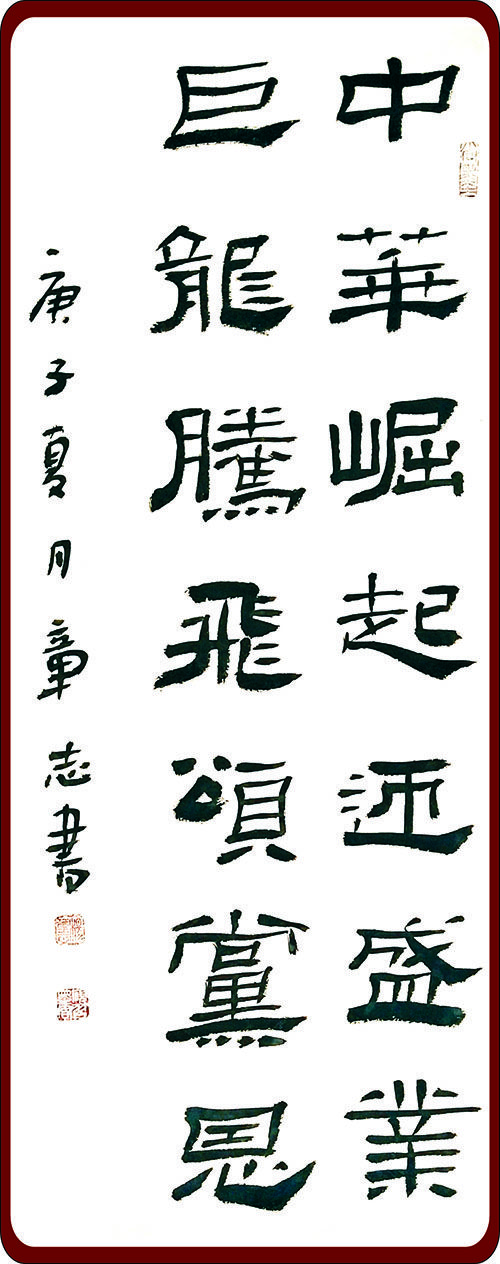 中華崛起迎盛業
巨龍騰飛頌黨恩
庚子夏月章志書